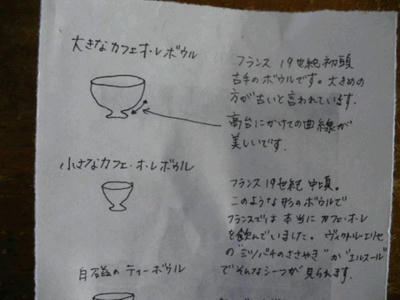 大きなカフェオ・レボウル
フランス 19世紀初頭
古手のボウルです。大きめの
方が古いと言われています。
高台にかけての曲線が
美しいです。
小さなカフェ・オ・レボウル
フランス19世紀中頃。
このような形のボウルで
フランスでは本当にカフェ・オ・レ
を飲んでいました。ヴィクトル・エリセ
の"ミツバチのささやき"か"エルスール"
でそんなシーンが見られます。
白磁のティーボウル